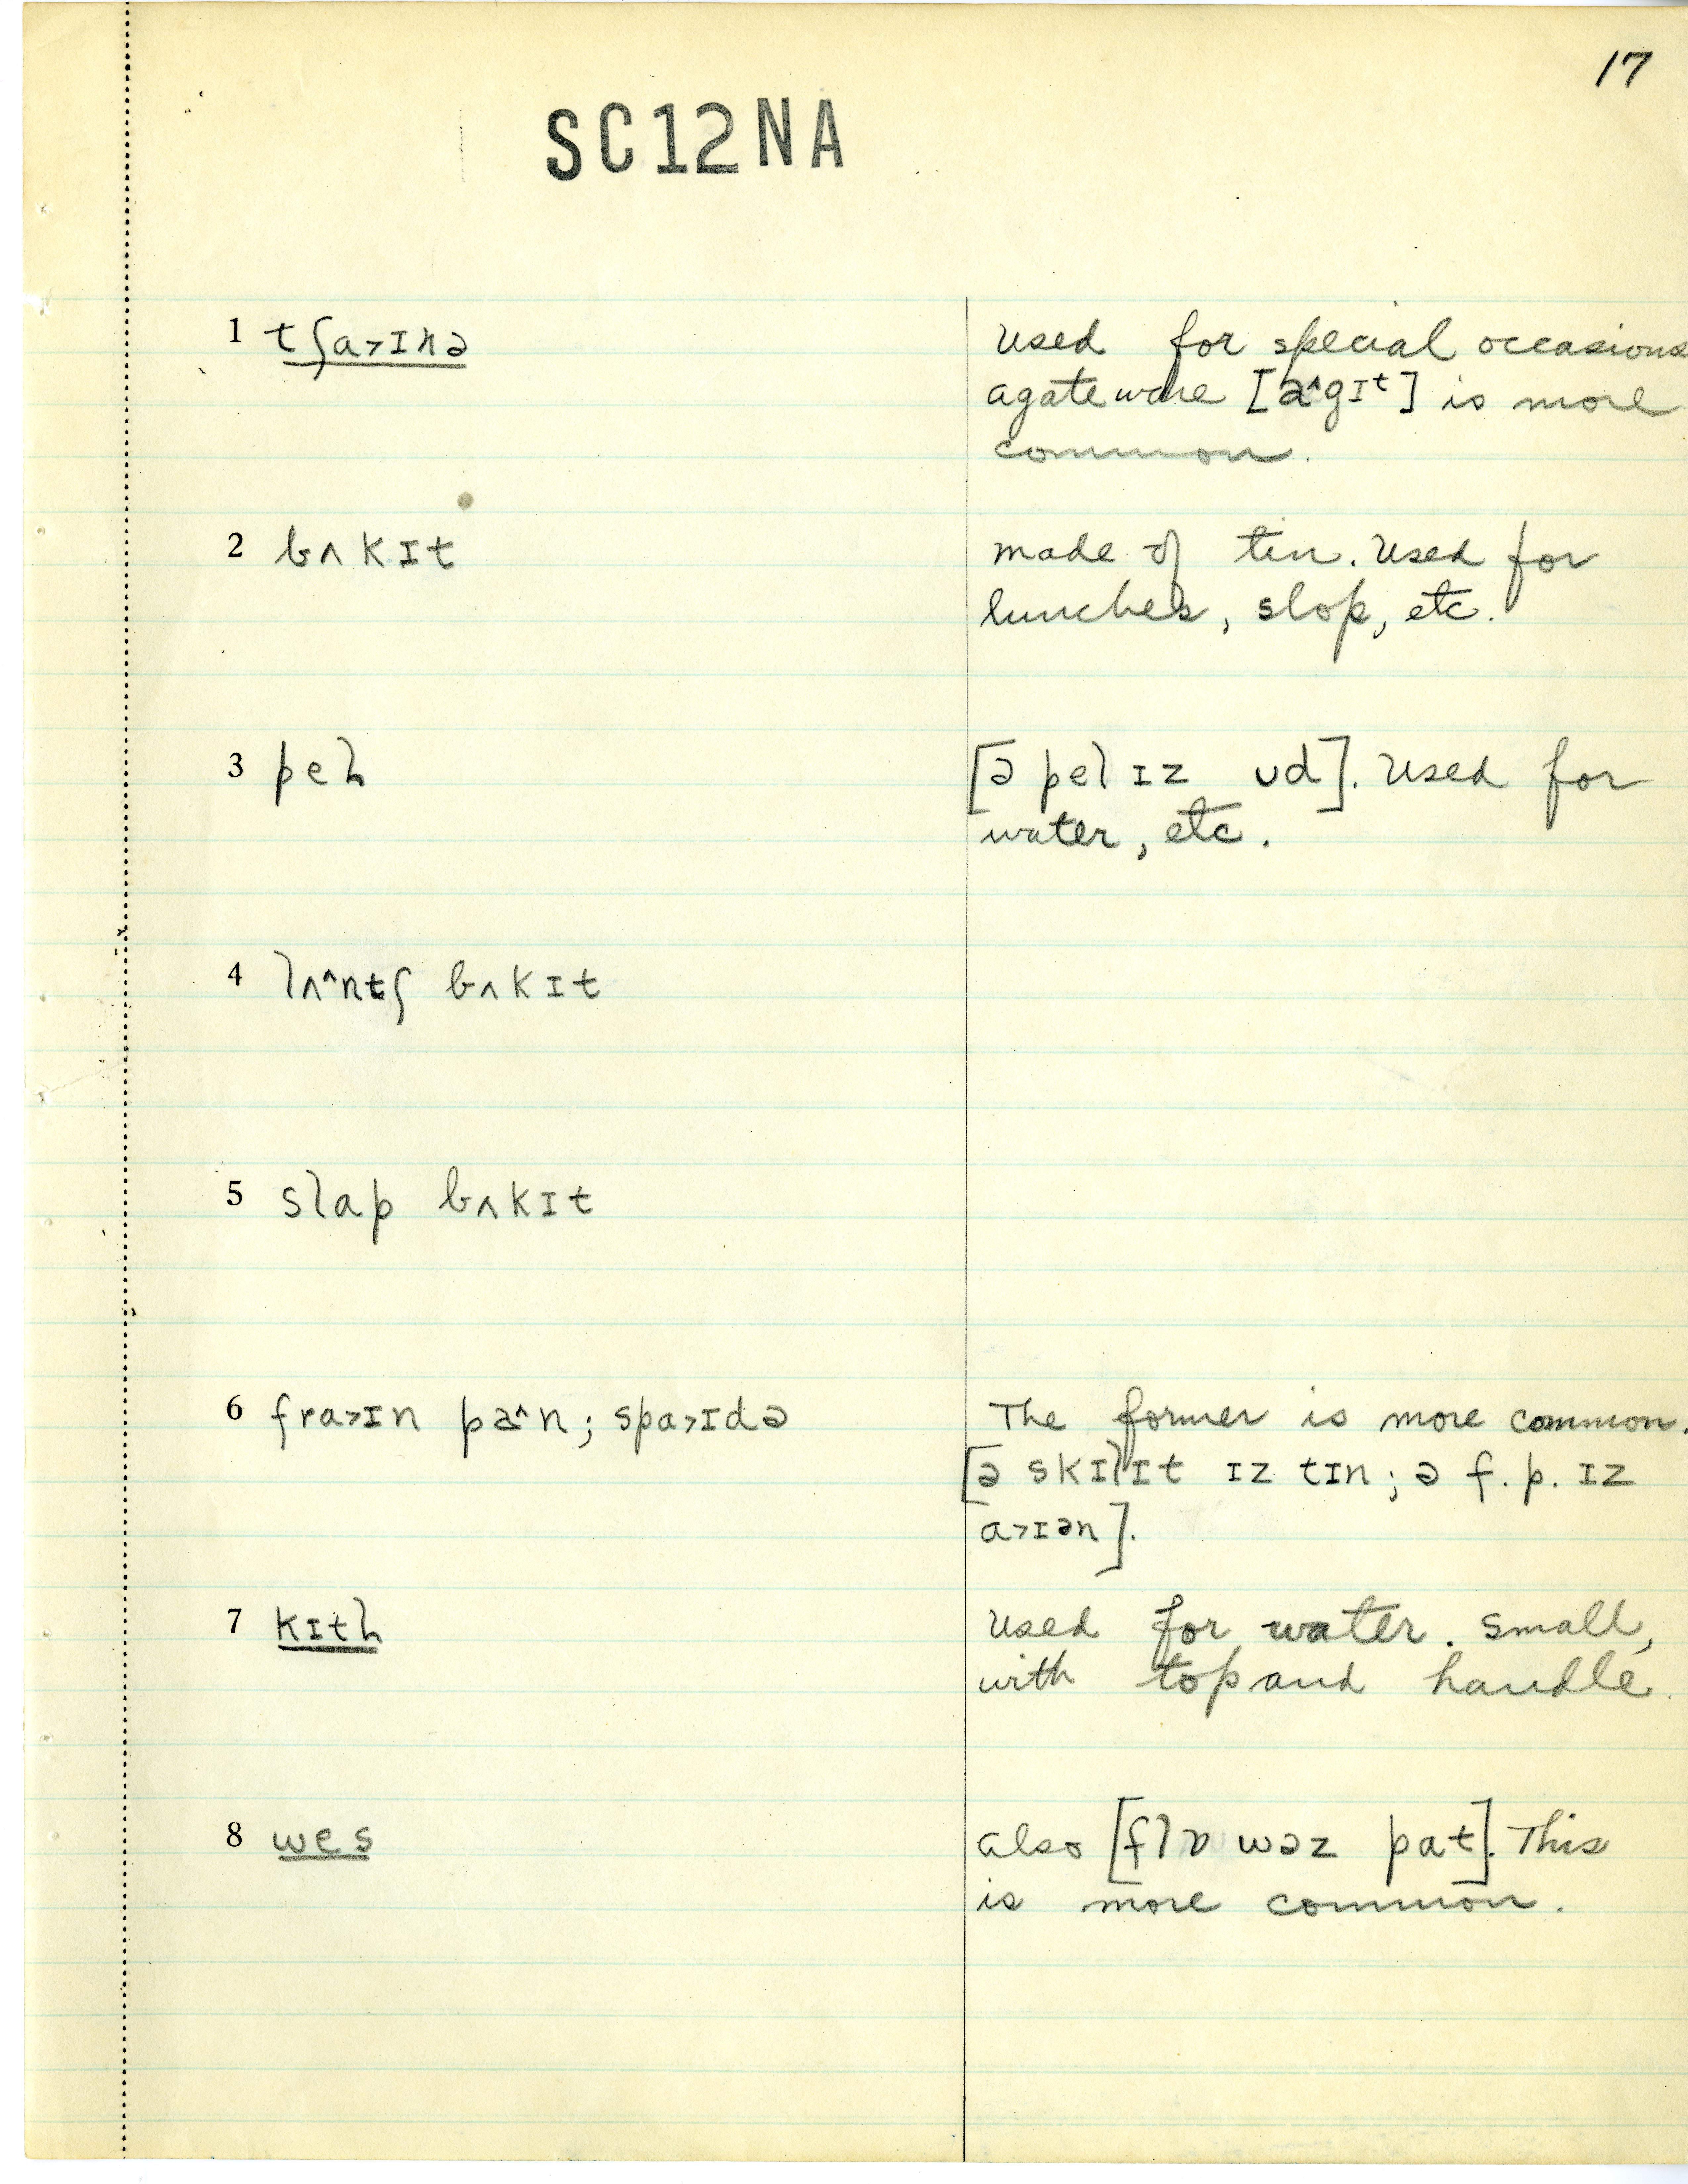 17
SC12NA
1 tʃa˃ɪnə
used for special occasions
agateware [a^gɪt] is more
common.
2 bʌkɪt
made of tin. used for
lunches, slop, etc.
3 peɫ
[ə pel ɪz ʊd]. used for
water, etc.
4 lʌ^ntʃ bʌkɪt
5 slap bʌkɪt
6 fra˃ɪn pa^n; spa˃ɪdə
The former is more common.
[ə skɪlɪt ɪz tɪn; ə f.p. ɪz
a˃ɪən].
7 kɪtɫ
used for water. small,
with top and handle.
8 wes
also [flɒwəz pat]. This
is more common.